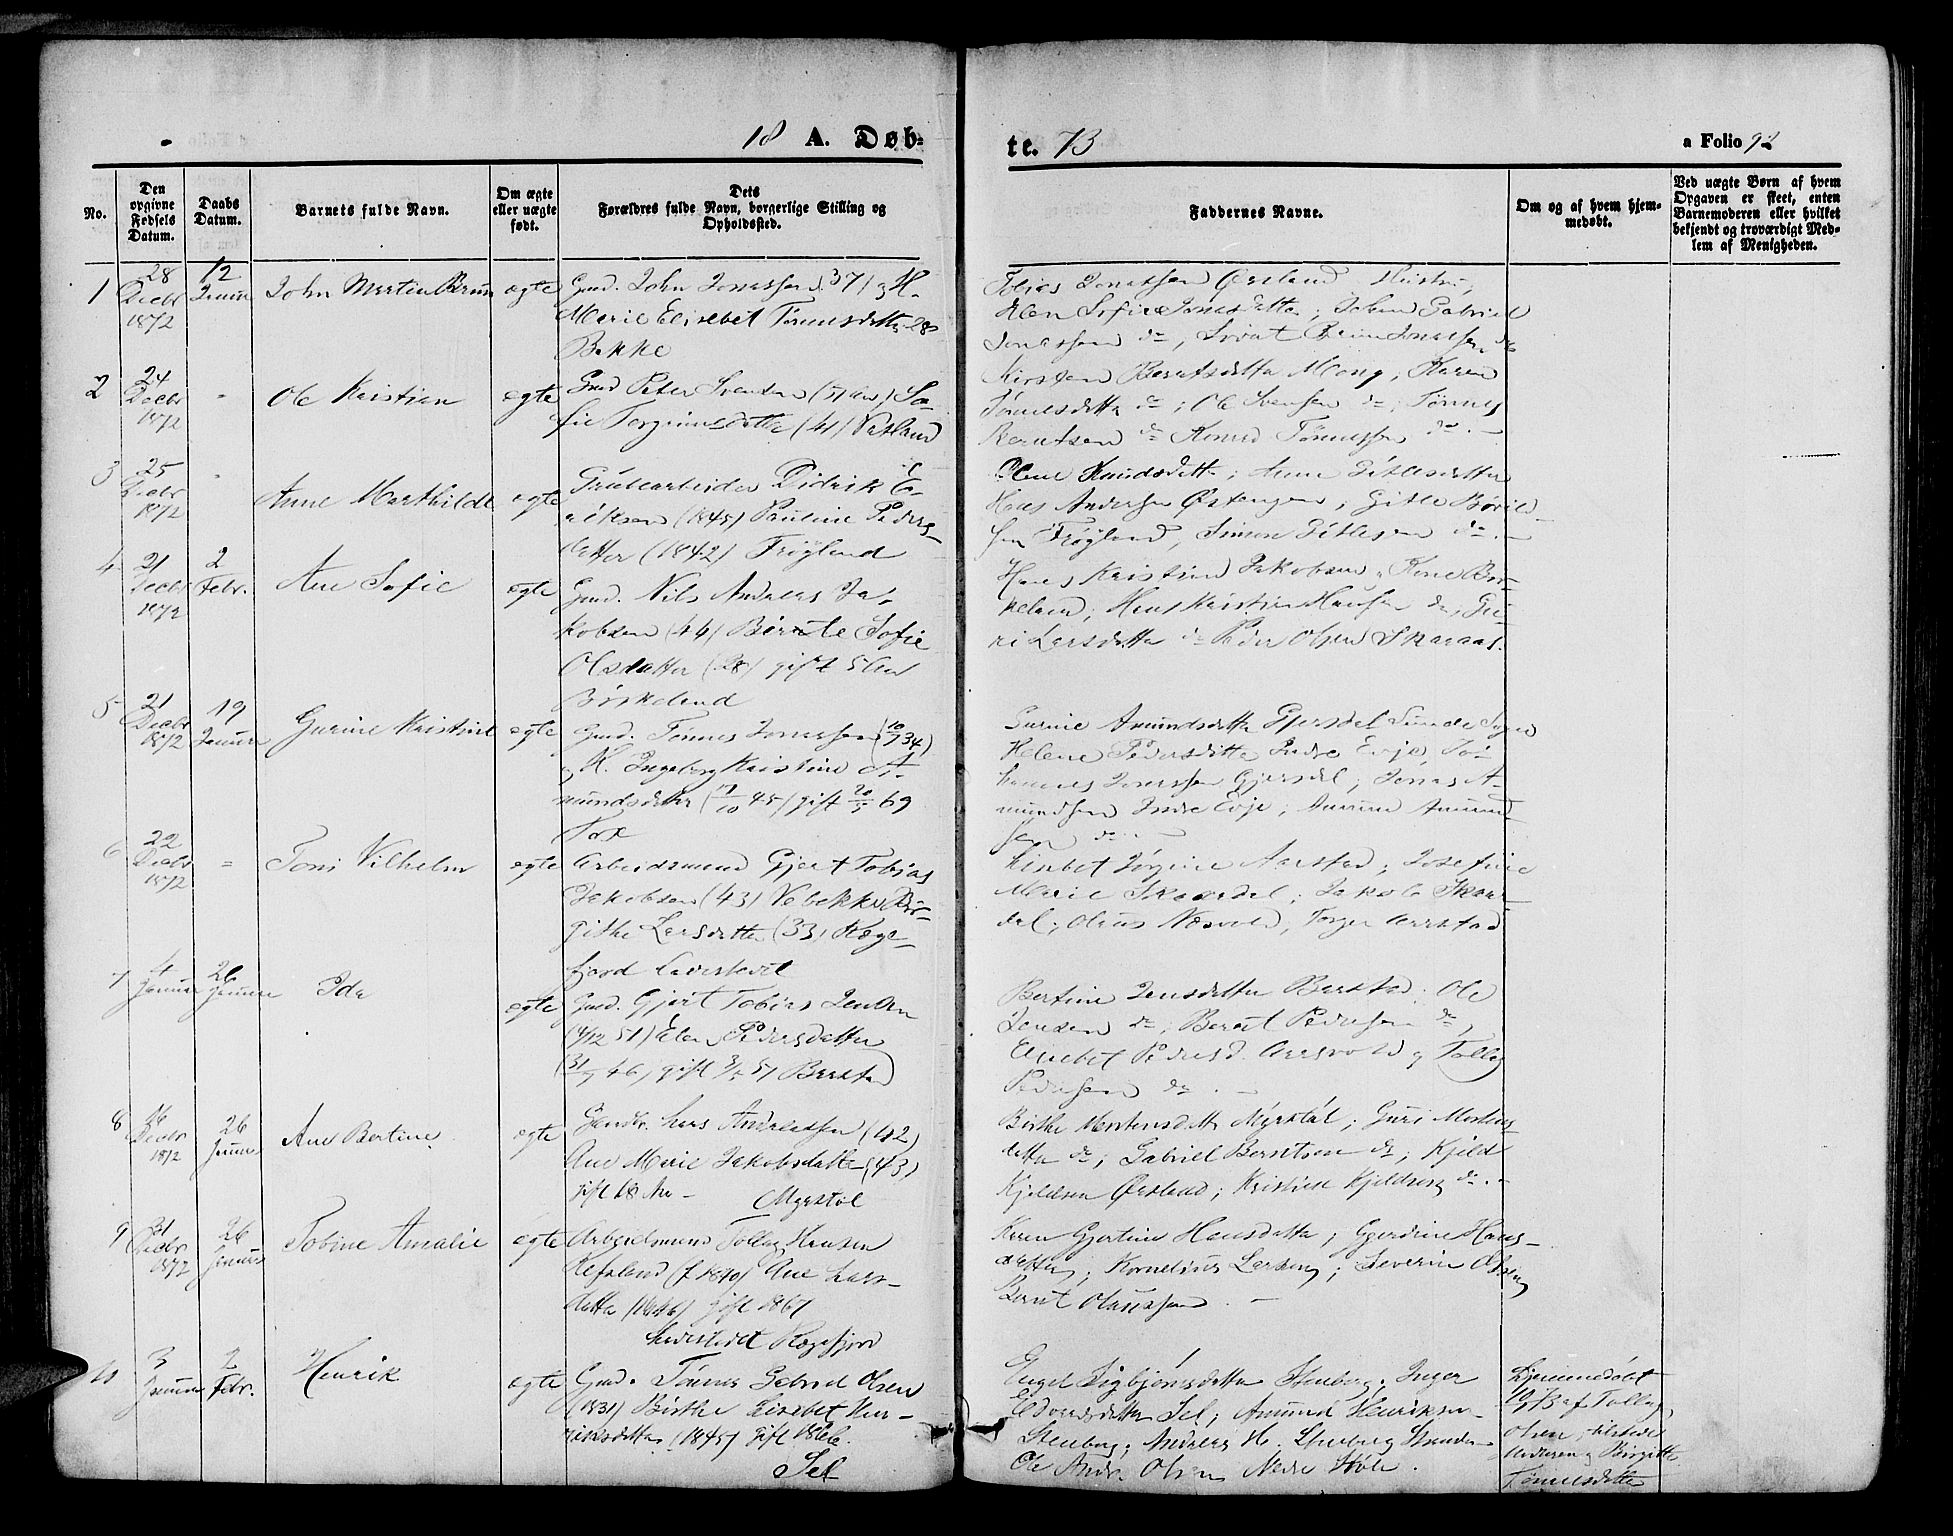 18 A. Døb-
te. 73
a Folio 92
No.
Den opgivne Fødsels Datum.
Daabs Datum.
Barnets fulde Navn.
Om ægte eller uægte født.
Dets Forældres fulde Navn, borgerlige Stilling og Opholdssted.
Faddernes Navne.
Om og af hvem hjemmedøbt.
Ved uægte Børn af hvem Opgaven er skeet, enten Barnemoderen eller hvilket bekjendt og troværdigt Medlem af Menigheden.
1
28 Decbr 1872
12 Januar
John Martin
egte
Gmd. John Jonassen (37) og H.
Marie Elisebet Tønnesdatter 28
Bekke
Tobias Jonassen Ørsland Hustru,
Sofie Jonasdatter; Johan Gabriel
Jonassen do,
Kirsten Berntsdatter Mong; Karen
2
24 Decbr 1872
"
Ole Kristian
egte
Gmd Peter Svendsen (51 Aar) So-
fie Torgrimsdatter (41)
Tønnesdatter do; Ole Svensen do; Tønnes
Berntsen do Konrad Tønnessen do. -
3
25 Decbr 1872
"
Anne Marthilde
egte
Grubearbeider Didrik E-
riksen (1845) Pauline Peders-
datter (1842) Frøyland
Olene Knudsdatter; Anne Gitlesdatter
Hans Andersen Østengen; Gitle
sen Frøyland, Simon Gitlesen do. -
4
21 Decbr 1872
2 Febr.
Ane Sofie
egte
Gmd. Nils Andreas Ja-
kobsen (44) Berrete Sofie
Olsdatter (28) gift 5 Aar
Børkeland
Hans Kristian Jakobsen,
keland; Hans Kristian Hansen do, Gu-
ri Larsdatter do Peder Olsen Skaraas.
5
21 Decbr 1872
19 Januar
Gurine Kristine
egte
Gmd. Tønnes Jonassen (10/7 34)
og H. Ingeborg Kristine A-
mundsdatter (17/10 45) gift 20/5 69
Tox
Gurine Amundsdatter Gjersdal Sunde Sogn
Helene Pedersdatter Indre Evje, Jo-
hannes Jonassen Gjersdal; Jonas A-
mundsen Indre Evje;
sen do. -
6
22 Decbr 1872
"
Toni Vilhelm
egte
Arbeidsmand Gjert Tobias
Jakobsen (43) Vebekke Bir-
githe Larsdatter (33) Rege-
fjord Ladested
Lisebet Jørgine Aarstad; Josefine
Marie Skaardal; Jakob Skaar-
dal; Olaus Næsvold, Torger Aarstad
7
4 Januar
26 Januar
Ida
egte
Gmd. Gjert Tobias Jensen
(4/12 51) Elen Pedersdatter
(31/7 46) gift Barstad
Bertine Jensdatter Barstad; Ole
Jensen do, Berent Pedersen do,
Elisebet Pedersd. Aarsvold, Tollag
Pedersen do. -
8
16 Decbr 1872
26 Januar
Ane Bertine
egte
Lars Andreassen (42)
Ane Marie Jakobsdatter (43)
gift 18 Aar - Myrstøl
Birthe Mortensdatter Myrstøl; Guri Mortens-
datter do; Gabriel Berntsen do; Kjeld
Kjeldsen Ørsland; Kristine Kjeldsen do. -
9
31 Decbr 1872
26 Januar
Tobine Amalie
egte
Arbeidsmand Tollag Hansen
Refsland (f. 1840) Ane Lars-
datter (1846) gift 1867
Ladestedet Rægefjord
Karen Gjertine Hansdatter; Gjerdine Hans-
datter; Kornelius Larsen; Severin Olsen
Berent Olaussen. -
10
3 Januar
2 Febr.
Henrik
egte
Gmd. Tønnes Gabriel Olsen
(1831) Birthe Lisebet Hen-
riksdatter (1845) gift 1866.
Sel
Engel Sigbjørnsdatter Stenberg; Inger
Edvardsdatter Sel; Amund Henriksen
Stenberg; Andreas H. Stenberg
Ole Andr. Olsen Nedre Støle.
Hjemmedøbt
af Tollag
Olsen, tilstede
Moderen og Birgitte
Tønnesdatter